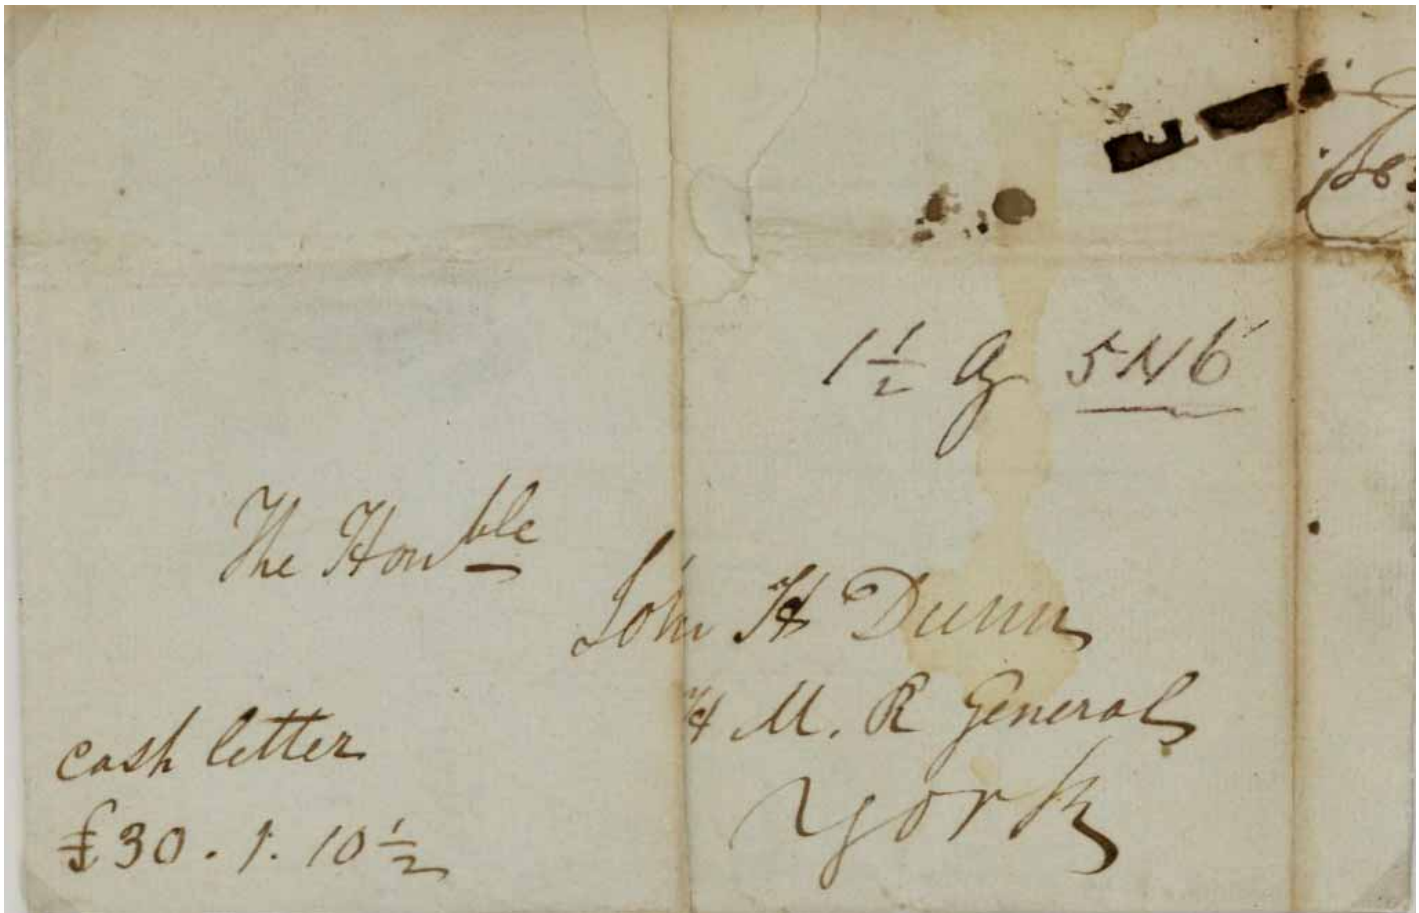 1 1/2 5N6
The Honble
John H Dunn
H M. R General
York
cash letter
£30.1.10 1/2